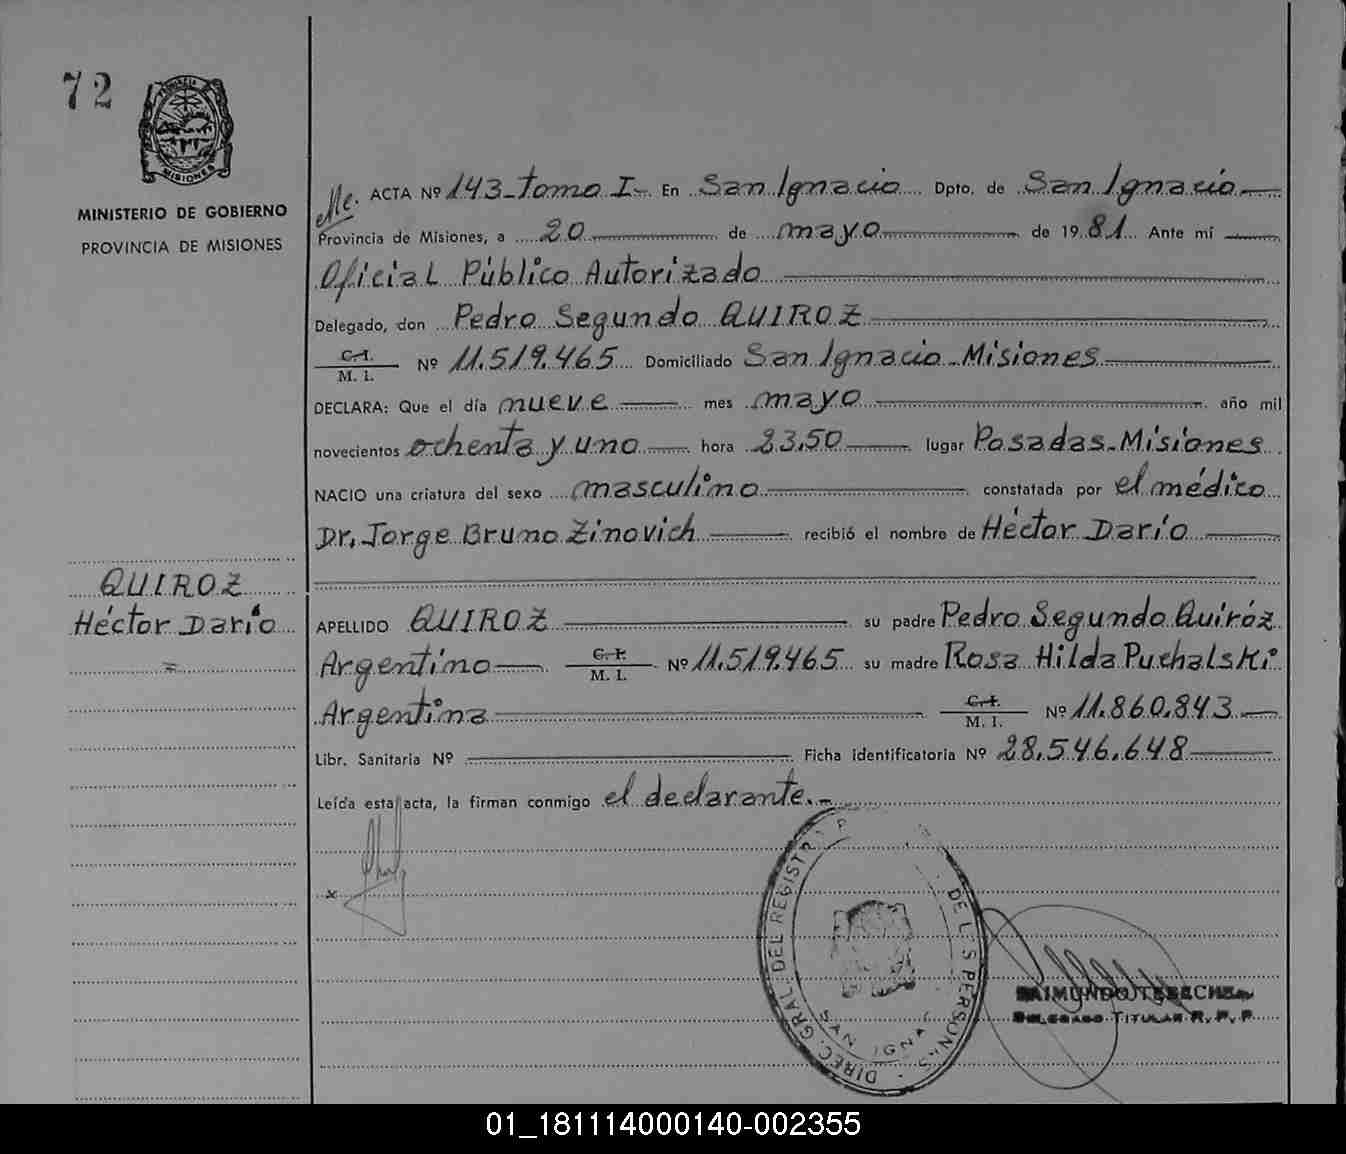 72
PROVINCIA DE
MISIONES
MINISTERIO DE GOBIERNO
PROVINCIA DE MISIONES
QUIROZ
Héctor Darío
=
ACTA Nº 143 - tomo I - En San Ignacio Dpto. de San Ignacio
Provincia de Misiones, a 20 de mayo de 1981 Ante mí
Oficial Público Autorizado
Delegado, don Pedro Segundo QUIROZ
C. I.
M. I. Nº 11.519.465 Domiciliado San Ignacio - Misiones
DECLARA: Que el día nueve mes mayo año mil
novecientos ochenta y uno hora 23,50 lugar Posadas - Misiones
NACIO una criatura del sexo masculino constatada por el médico
Dr. Jorge Bruno Zinovich recibió el nombre de Héctor Darío
APELLIDO QUIROZ su padre Pedro Segundo Quiróz
Argentino C. I.
M. I. Nº 11.519.465 su madre Rosa Hilda Puchalski
Argentina C. I.
M. I. Nº 11.860.843
Libr. Sanitaria Nº Ficha identificatoria Nº 28.546.648
Leída esta acta, la firman conmigo el declarante.-
x
DIREC. GRAL. DEL REGISTR P DE L S PERSONAS
SAN IGNAC
RAIMUNDO
DELEGADO TITULAR R. P. P.
01_181114000140-002355